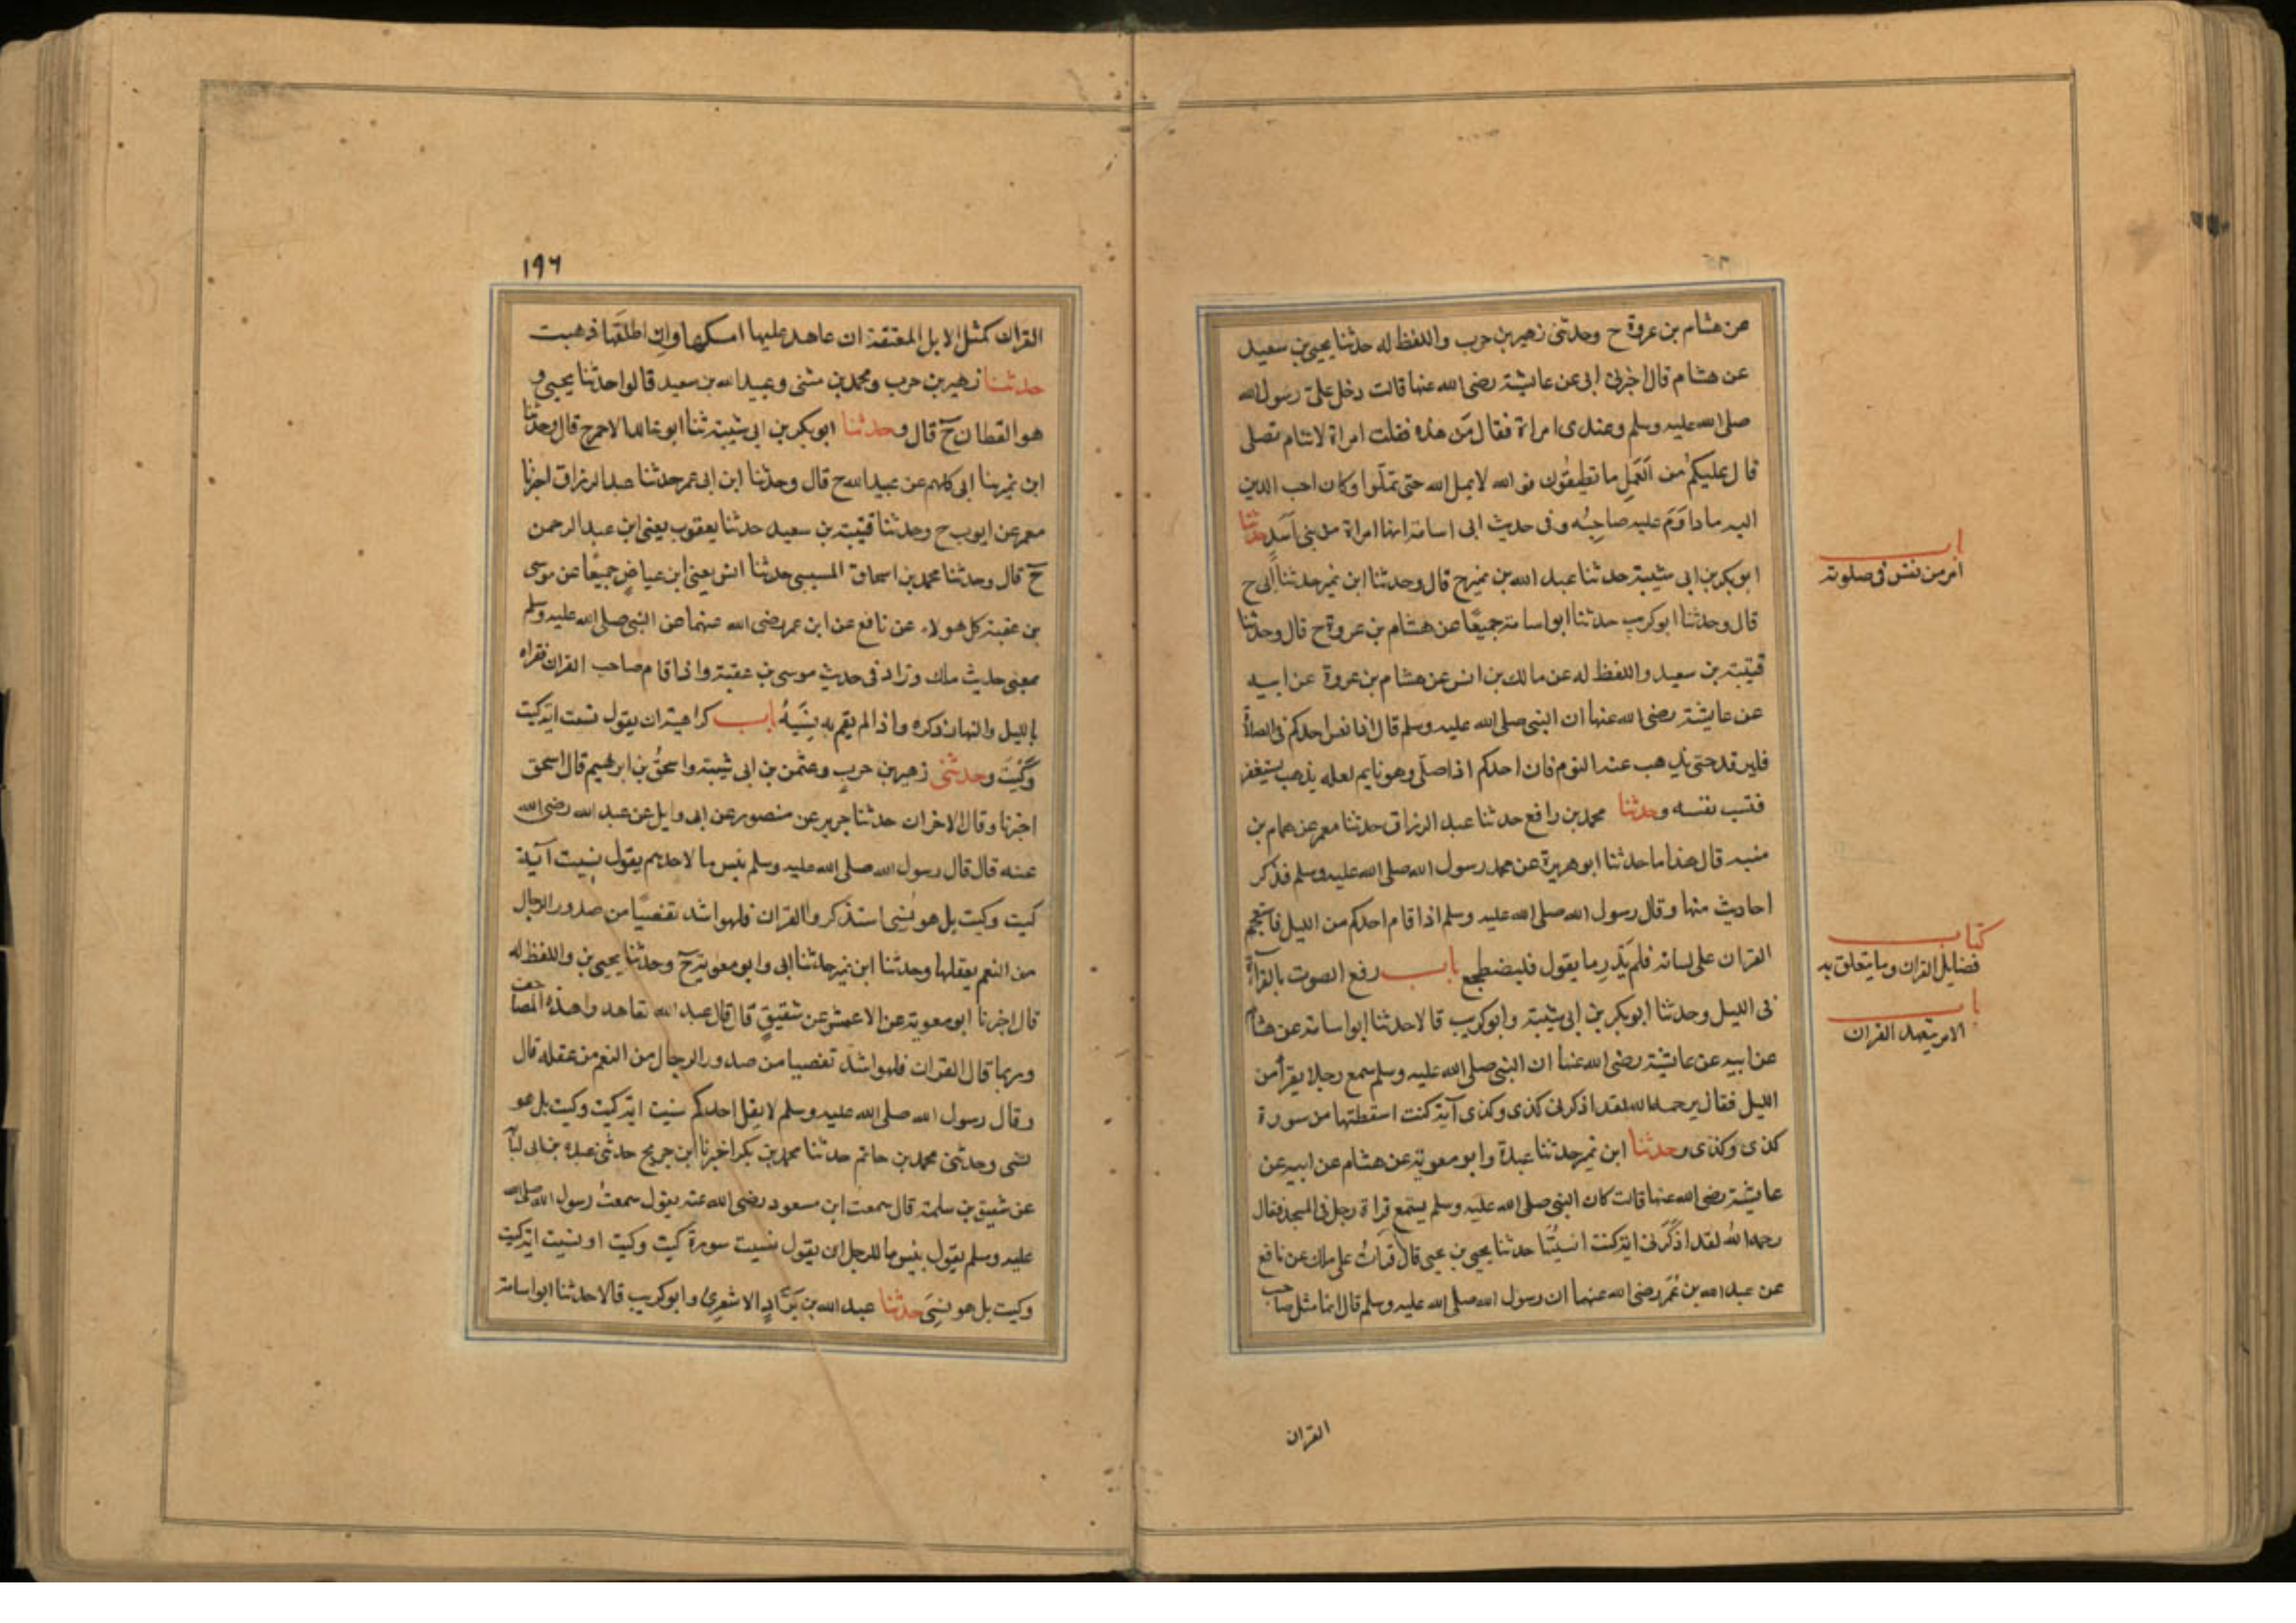 عن هشام بن عروة ح وحدثنى زهير بن حرب واللفظ له حدثنا يحيى بن سعيد
عن هشام قال اخبرنى ابى عن عايشة رضى الله عنها قالت دخل على رسول الله
صلى الله عليه وسلم وعندى امراة فقال من هذه فقلت امراة لا تنام تصلى
قال عليكم من العمل ما تطيقون فو الله لا يمل الله حتى تملوا وكان احب الدين
اليه ما داوم عليه صاحبه وفى حديث ابى اسامة انها امراة من بنى اسد حدثنا
ابو بكر بن ابى شيبة حدثنا عبد الله بن نمير ح قال وحدثنا ابن نمير حدثنا ابى ح
قال وحدثنا ابو كريب حدثنا ابو اسامة جميعًا عن هشام بن عروة ح قال وحدثنا
قتيبة بن سعيد واللفظ له عن مالك بن انس عن هشام بن عروة عن ابيه
عن عايشة رضى الله عنها ان النبى صلى الله عليه وسلم قال اذا نعس احدكم فى الصلاة
فليرقد حتى يذهب عنه النوم فان احدكم اذا صلى وهو نايم لعله يذهب يستغفر
فتسب نفسه وحدثنا محمد بن رافع حدثنا عبد الرزاق حدثنا معمر عن همام بن
منبه قال هذا ما حدثنا ابو هريرة عن محمد رسول الله صلى الله عليه وسلم فذكر
احاديث منها وقال رسول الله صلى الله عليه وسلم اذا قام احدكم من الليل فاستعجم
القران على لسانه فلم يَدْرِ ما يقول فليضطجع باب رفع الصوت بالقراة
فى الليل وحدثنا ابو بكر بن ابى شيبة وابو كريب قالا حدثنا ابو اسامة عن هشام
عن ابيه عن عايشة رضى الله عنها ان النبى صلى الله عليه وسلم سمع رجلا يقرأ من
الليل فقال يرحمه الله لقد اذكرنى كذى وكذى آية كنت اسقطتها من سورة
كذى وكذى وحدثنا ابن نمير حدثنا عبدة وابو معوية عن هشام عن ابيه عن
عايشة رضى الله عنها قالت كان النبى صلى الله عليه وسلم يستمع قراة رجل فى المسجد فقال
رحمه الله لقد اذكرنى اية كنت انسيتها حدثنا يحيى بن يحيى قال قرات على ملك عن نافع
عن عبد الله بن عُمَر رضى الله عنهما ان رسول الله صلى الله عليه وسلم قال انما مثل صاحب
القران
باب
امر من نعس فى صلوته
كتاب
فضايل القران وما يتعلق به
باب
الامر بتعهد القران
١٩٦
القران كمثل الابل المعقلة ان عاهد عليها امسكها وان اطلقها ذهبت
حدثنا زهير بن حرب ومحمد بن مثنى وعبيد الله بن سعيد قالوا حدثنا يحيى و
هو القطان ح قال وحدثنا ابو بكر بن ابى شيبة ثنا ابو خالد الاحمر ح قال وحدثنا
ابن نمير ثنا ابى كلهم عن عبيد الله ح قال وحدثنا ابن ابى عمر حدثنا عبد الرزاق اخبرنا
معمر عن ايوب ح وحدثنا قتيبة بن سعيد حدثنا يعقوب يعنى ابن عبد الرحمن
ح قال وحدثنا محمد بن اسحاق المسيبى حدثنا انس يعنى ابن عياض جميعًا عن موسى
بن عقبة كل هولاء عن نافع عن ابن عمر رضى الله عنهما عن النبى صلى الله عليه وسلم
بمعنى حديث ملك وزاد فى حديث موسى بن عقبة واذا قام صاحب القران فقراه
بالليل والنهار ذكره واذا لم يقم به نَسِيَهُ باب كراهية ان يقول نسيت اية كيت
وكَيْتَ وحدثنى زهير بن حرب وعثمن بن ابى شيبة واسحق بن ابرهيم قال اسحق
اخبرنا وقال الاخران حدثنا جرير عن منصور عن ابى وايل عن عبد الله رضى الله
عنه قال قال رسول الله صلى الله عليه وسلم بئس ما لاحدهم يقول نسيت آية
كيت وكيت بل هو نُسِّى استذكروا القران فلهو اشد تفصيًا من صدور الرجال
من النعم بعقلها وحدثنا ابن نمير حدثنا ابى وابو معوية ح وحدثنا يحيى بن واللفظ له
قال اخبرنا ابو معوية عن الاعمش عن شقيق قال قال عبد الله تعاهدوا هذه المصاحف
وربما قال القران فلهو اشد تفصيا من صدور الرجال من النعم من عقله قال
وقال رسول الله صلى الله عليه وسلم لا يقل احدكم نسيت اية كيت وكيت بل هو
نسى وحدثنى محمد بن حاتم حدثنا محمد بن بكر اخبرنا ابن جريج حدثنى عبدة بن ابى لبابة
عن شقيق بن سلمة قال سمعت ابن مسعود رضى الله عنه يقول سمعتُ رسول الله صلى الله
عليه وسلم يقول بئس ما للرجل ان يقول نسيت سورة كيت وكيت او نسيت اية كيت
وكيت بل هو نسى حدثنا عبد الله بن بَرَّادٍ الاشعرى وابو كريب قالا حدثنا ابو اسامة